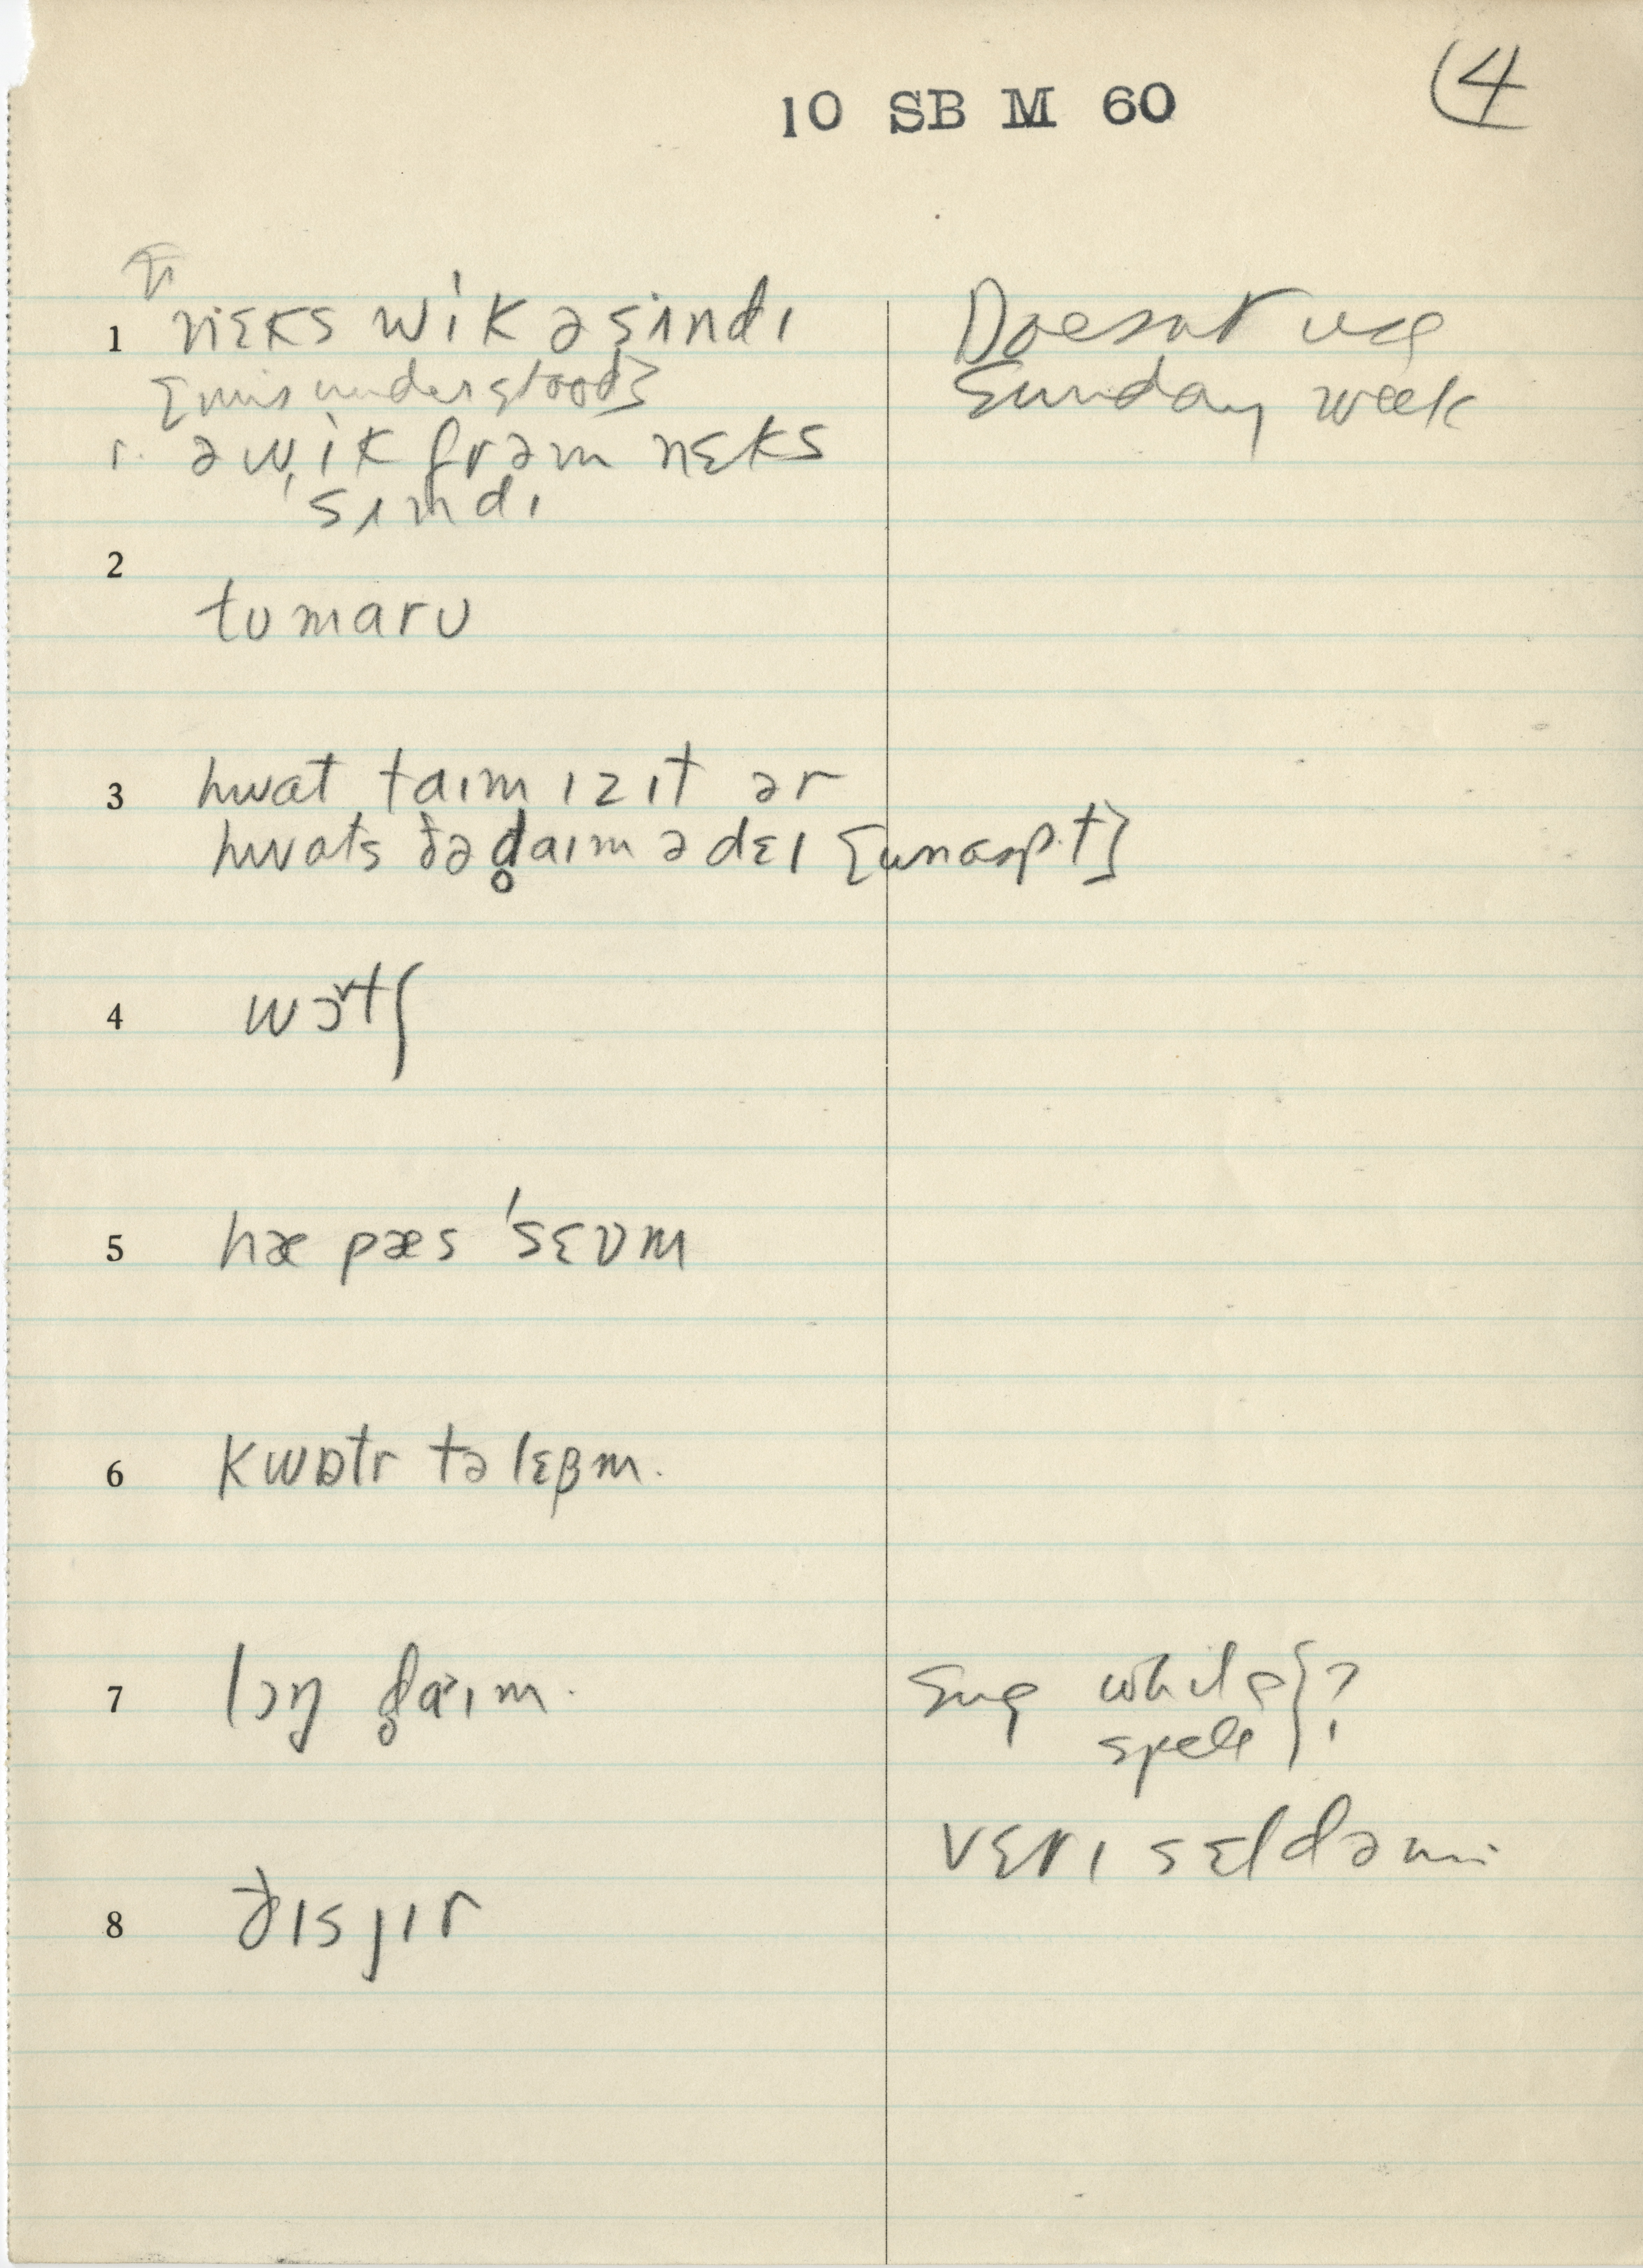 10 SB M 60
4
1 nɛks wik ə sʌndɪ
Doesnt use
[misunderstood]
Sunday week
r. ə wik frəm nɛks
sʌndɪ
2
tʊmarʊ
3 hwat taɪm ɪz ɪt ər
hwats ðə d̥aɪm ə dɛɪ [unasp. t]
4 wɔtʃ
5 hæ pæs 'sɛvm
6 kwɒtr tə lɛβm.
7 lɔŋ d̥aɪm.
Sug while } ?
spell
vɛrɪ sɛldəm
8 ðɪs jɪr